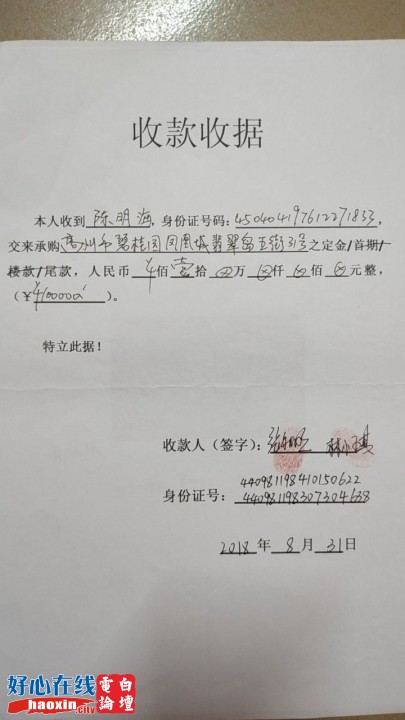 收款收据
本人收到 陈明海,身份证号码:450404197612271833
交来承购 高州市碧桂园凤凰城翡翠岛五街31号之定金/首期/
楼款/尾款,人民币 ¥佰壹拾 万 仟 佰 元整,
(¥100000)。
特立此据!
收款人(签字): 林小琪
440981198410150622
身份证号:440981198307304638
2018年8月31日
好心在线
haoxin.city
电白
論壇